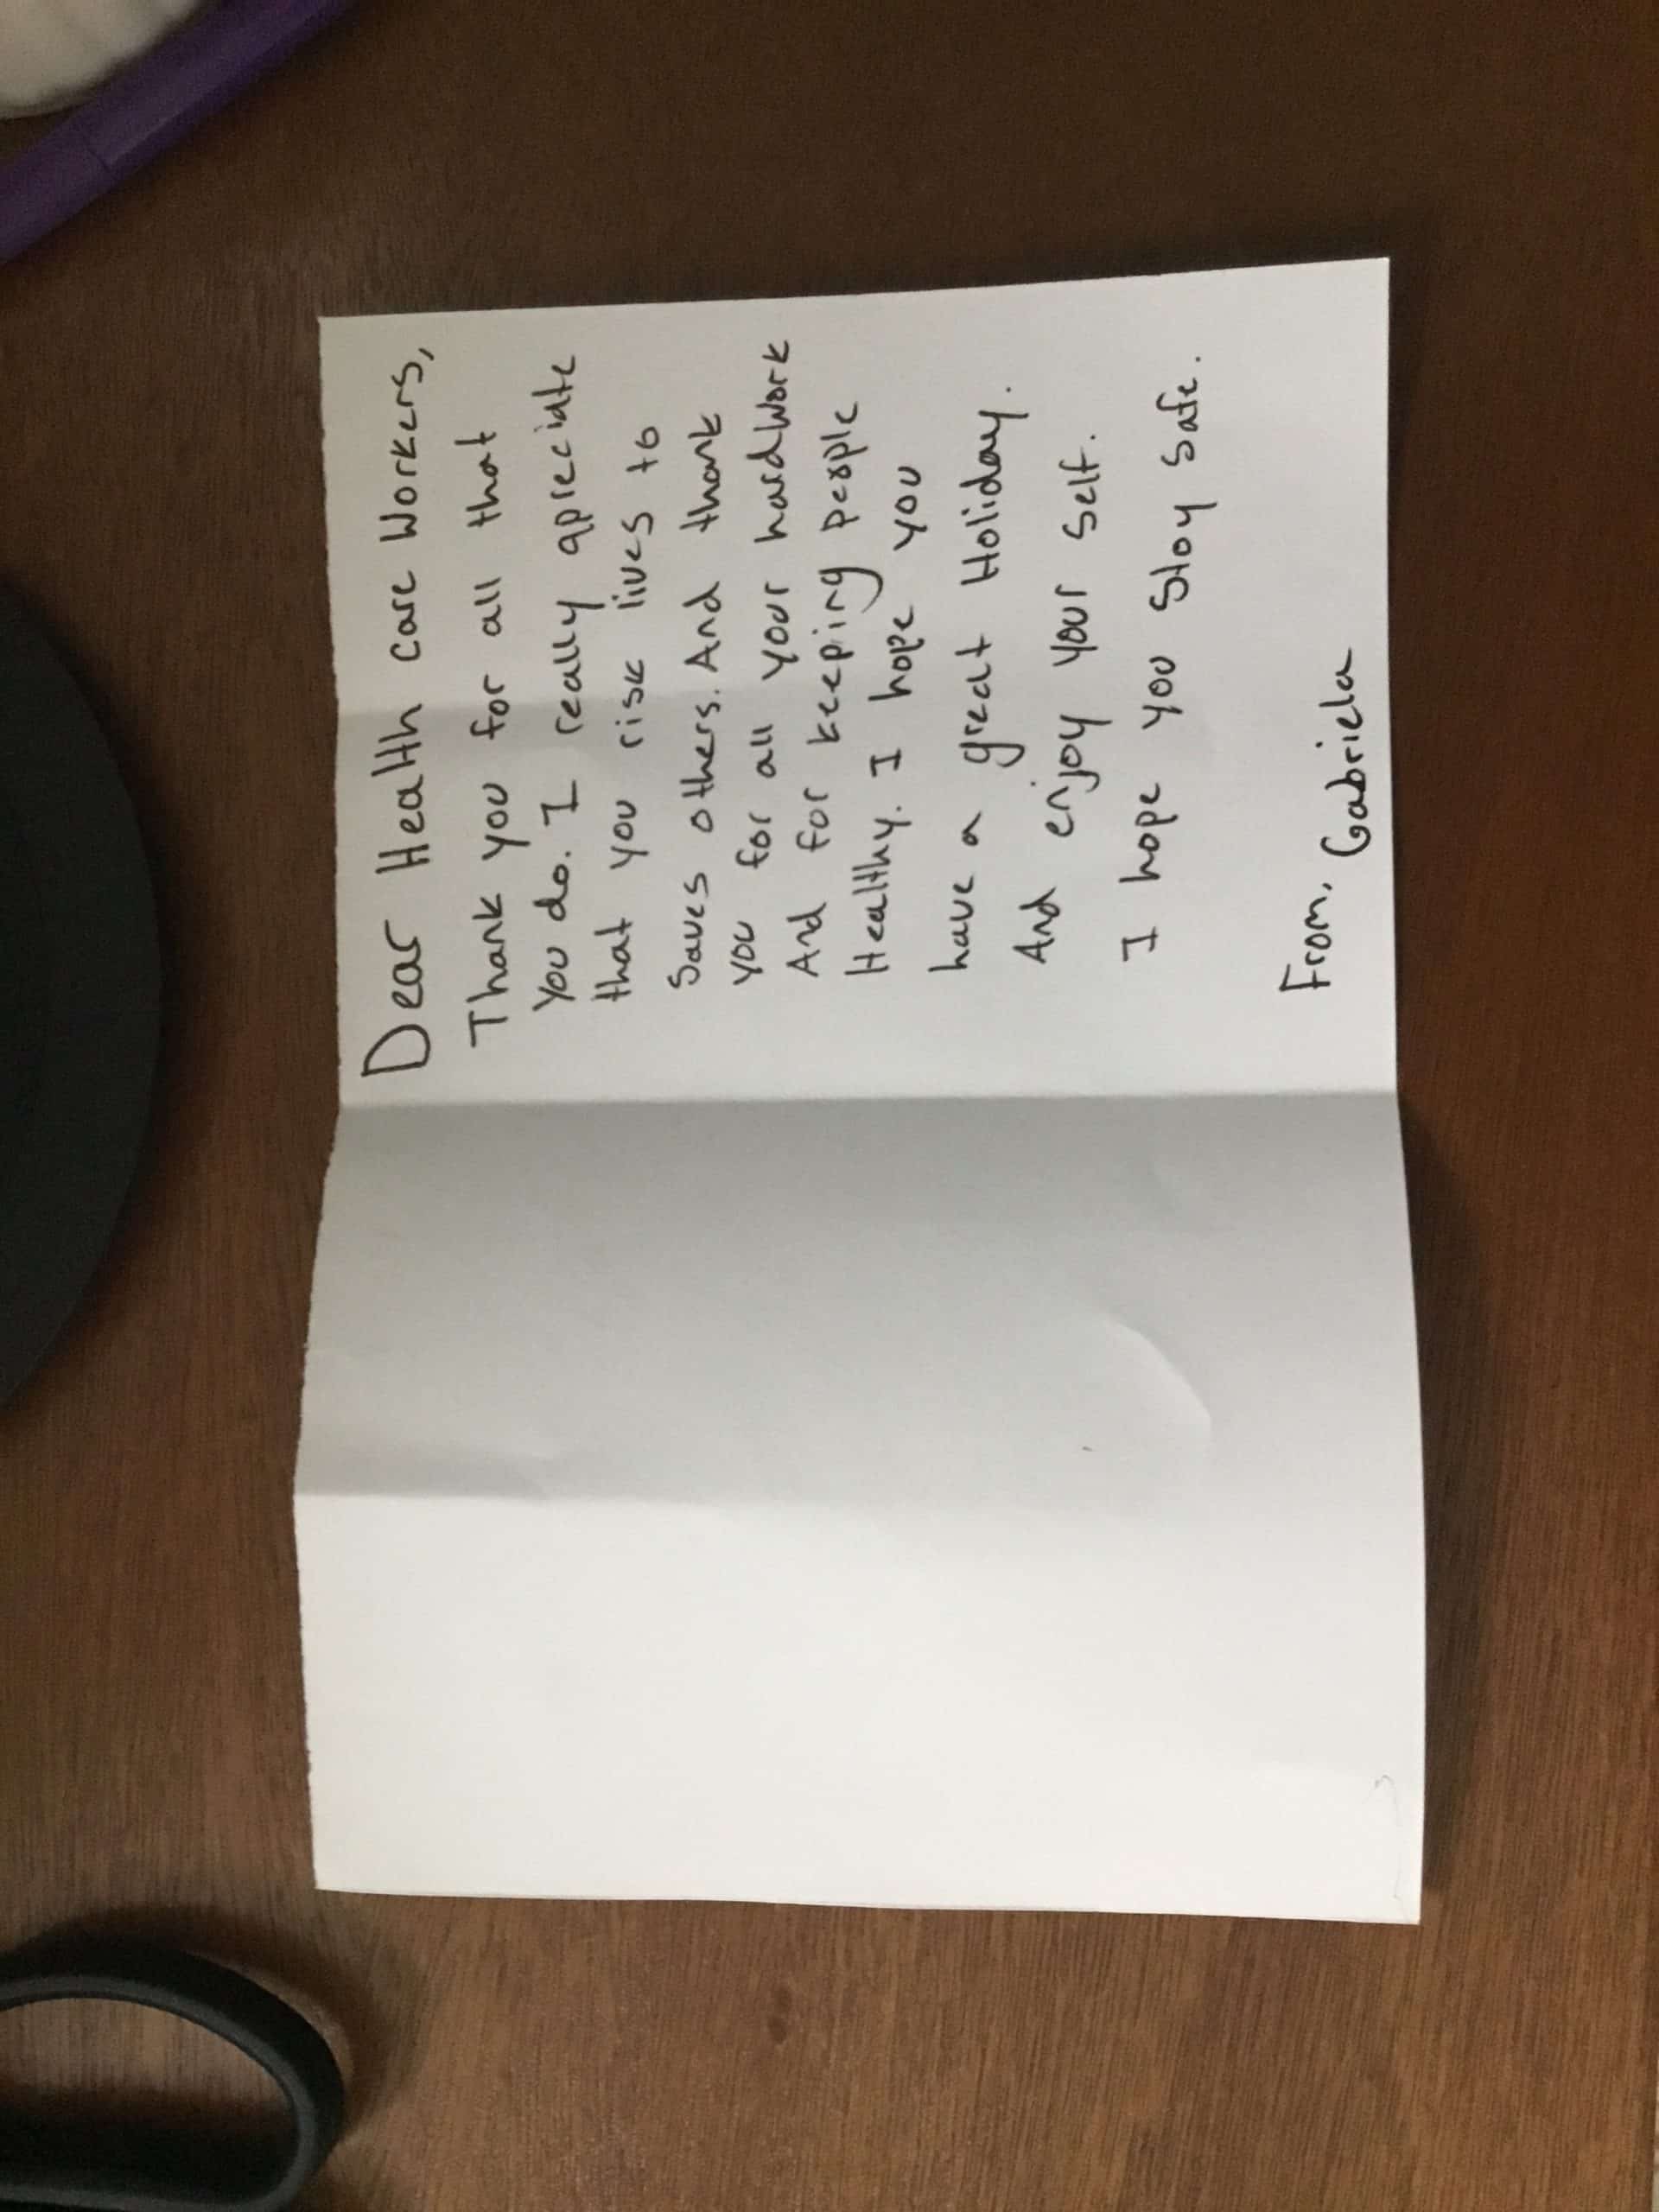 Dear Health care Workers,
Thank you for all that
You do. I really apreciate
that you risk lives to
Saves others. And thank
you for all your hardwork
And for keeping people
Healthy. I hope you
have a great Holiday.
And enjoy your self.
I hope you stay safe.
From, Gabriela